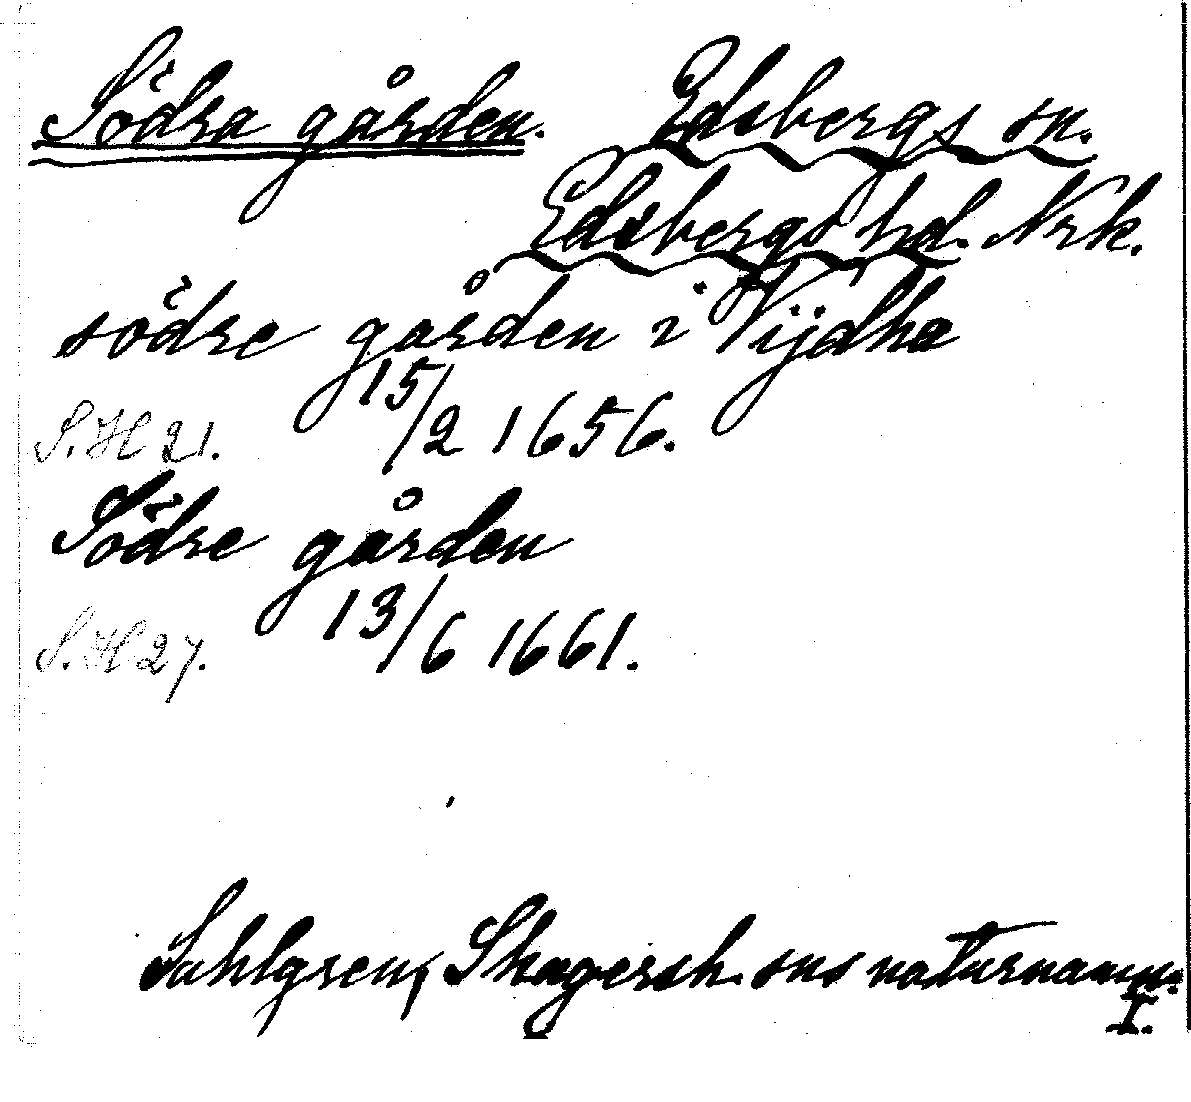 Södra gården. Edsbergs sn.
Edsbergs hd. Nrk.
södre gården i Vijdhe
S.H 21. 15/2 1656.
Södre gården
S.H 27. 13/6 1661.
Sahlgren, Skagersh. sns naturnamn.
I.